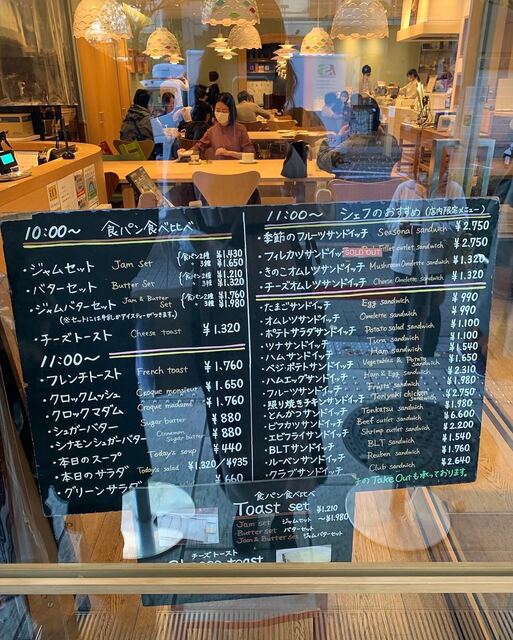 10:00～ 食パン食べ比べ
・ジャムセット Jam set {食パン2種 ¥1.430
・3種 ¥1.650
・バターセット Butter Set {食パン2種 ¥1.210
・3種 ¥1.320
・ジャムバターセット Jam & Butter Set {食パン2種 ¥1.760
・3種 ¥1.980
・チーズトースト Cheese toast ¥1.320
11:00～
・フレンチトースト French toast ¥1.760
・クロックムッシュ Croque monsieur ¥1.650
・クロックマダム Croque madame ¥1.760
・シュガーバター Sugar butter ¥880
・シナモンシュガーバター Cinnamon Sugar butter ¥880
・本日のスープ Today's soup ¥440
・本日のサラダ Today's salad ¥1.320/¥935
・グリーンサラダ ¥660
11:00～ シェフのおすすめ (店内限定メニュー)
・季節のフルーツサンドイッチ Seasonal sandwich ¥2.750
・フィレカツサンドイッチ SOLD OUT Fillet cutlet sandwich ¥2.750
・きのこオムレツサンドイッチ Mushroom Omelette sandwich ¥1.320
・チーズオムレツサンドイッチ Cheese Omelette sandwich ¥1.320
・たまごサンドイッチ Egg sandwich ¥990
・オムレツサンドイッチ Omelette sandwich ¥990
・ポテトサラダサンドイッチ Potato salad sandwich ¥1.100
・ツナサンドイッチ Tuna sandwich ¥1.100
・ハムサンドイッチ Ham sandwich ¥1.540
・ベジ・ポテトサンドイッチ Vegetables & Potato sandwich ¥1.650
・ハムエッグサンドイッチ Ham & Egg sandwich ¥2.310
・フルーツサンドイッチ Fruits sandwich ¥1.980
・照り焼きチキンサンドイッチ Teriyaki chicken sandwich ¥2.750
・とんかつサンドイッチ Tonkatsu sandwich ¥1.980
・ビフカツサンドイッチ Beef cutlet sandwich ¥6.600
・エビフライサンドイッチ Shrimp cutlet sandwich ¥2.200
・BLTサンドイッチ BLT sandwich ¥1.540
・ルーベンサンドイッチ Reuben sandwich ¥1.760
・クラブサンドイッチ Club sandwich ¥2.640
のTake Outも承っております。
食パン食べ比べ
Toast set
¥1.210
～¥1.980
Jam set ジャムセット
Butter set バターセット
Jam & Butter set ジャムバターセット
チーズトースト
Cheese toast